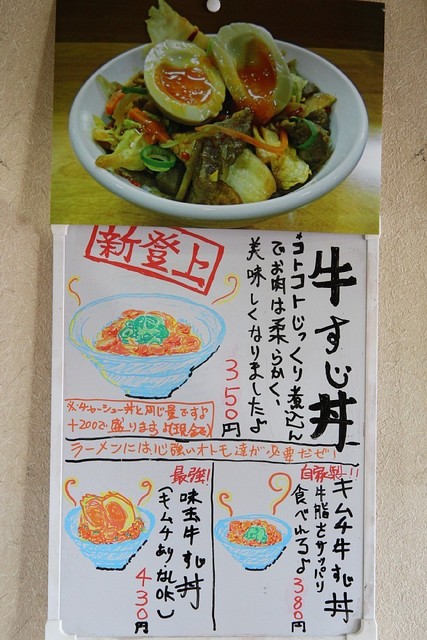 新登場
牛すじ丼
コトコトじっくり煮込ん
でお肉は柔らかく、
美味しくなりましたよ
350円
※チャーシュー丼と同じ量ですよ
+200で盛りますよ(現金で)
ラーメンには心強いオトモ達が必要だぜ!
自家製!!
キムチ牛すじ丼
牛脂をサッパリ
食べれるよ
380円
最強!
味玉牛すじ丼
(キムチありなしOK)
430円